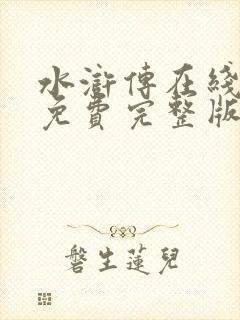 水滸傳在綫
免費完整版
磐生蓮兒